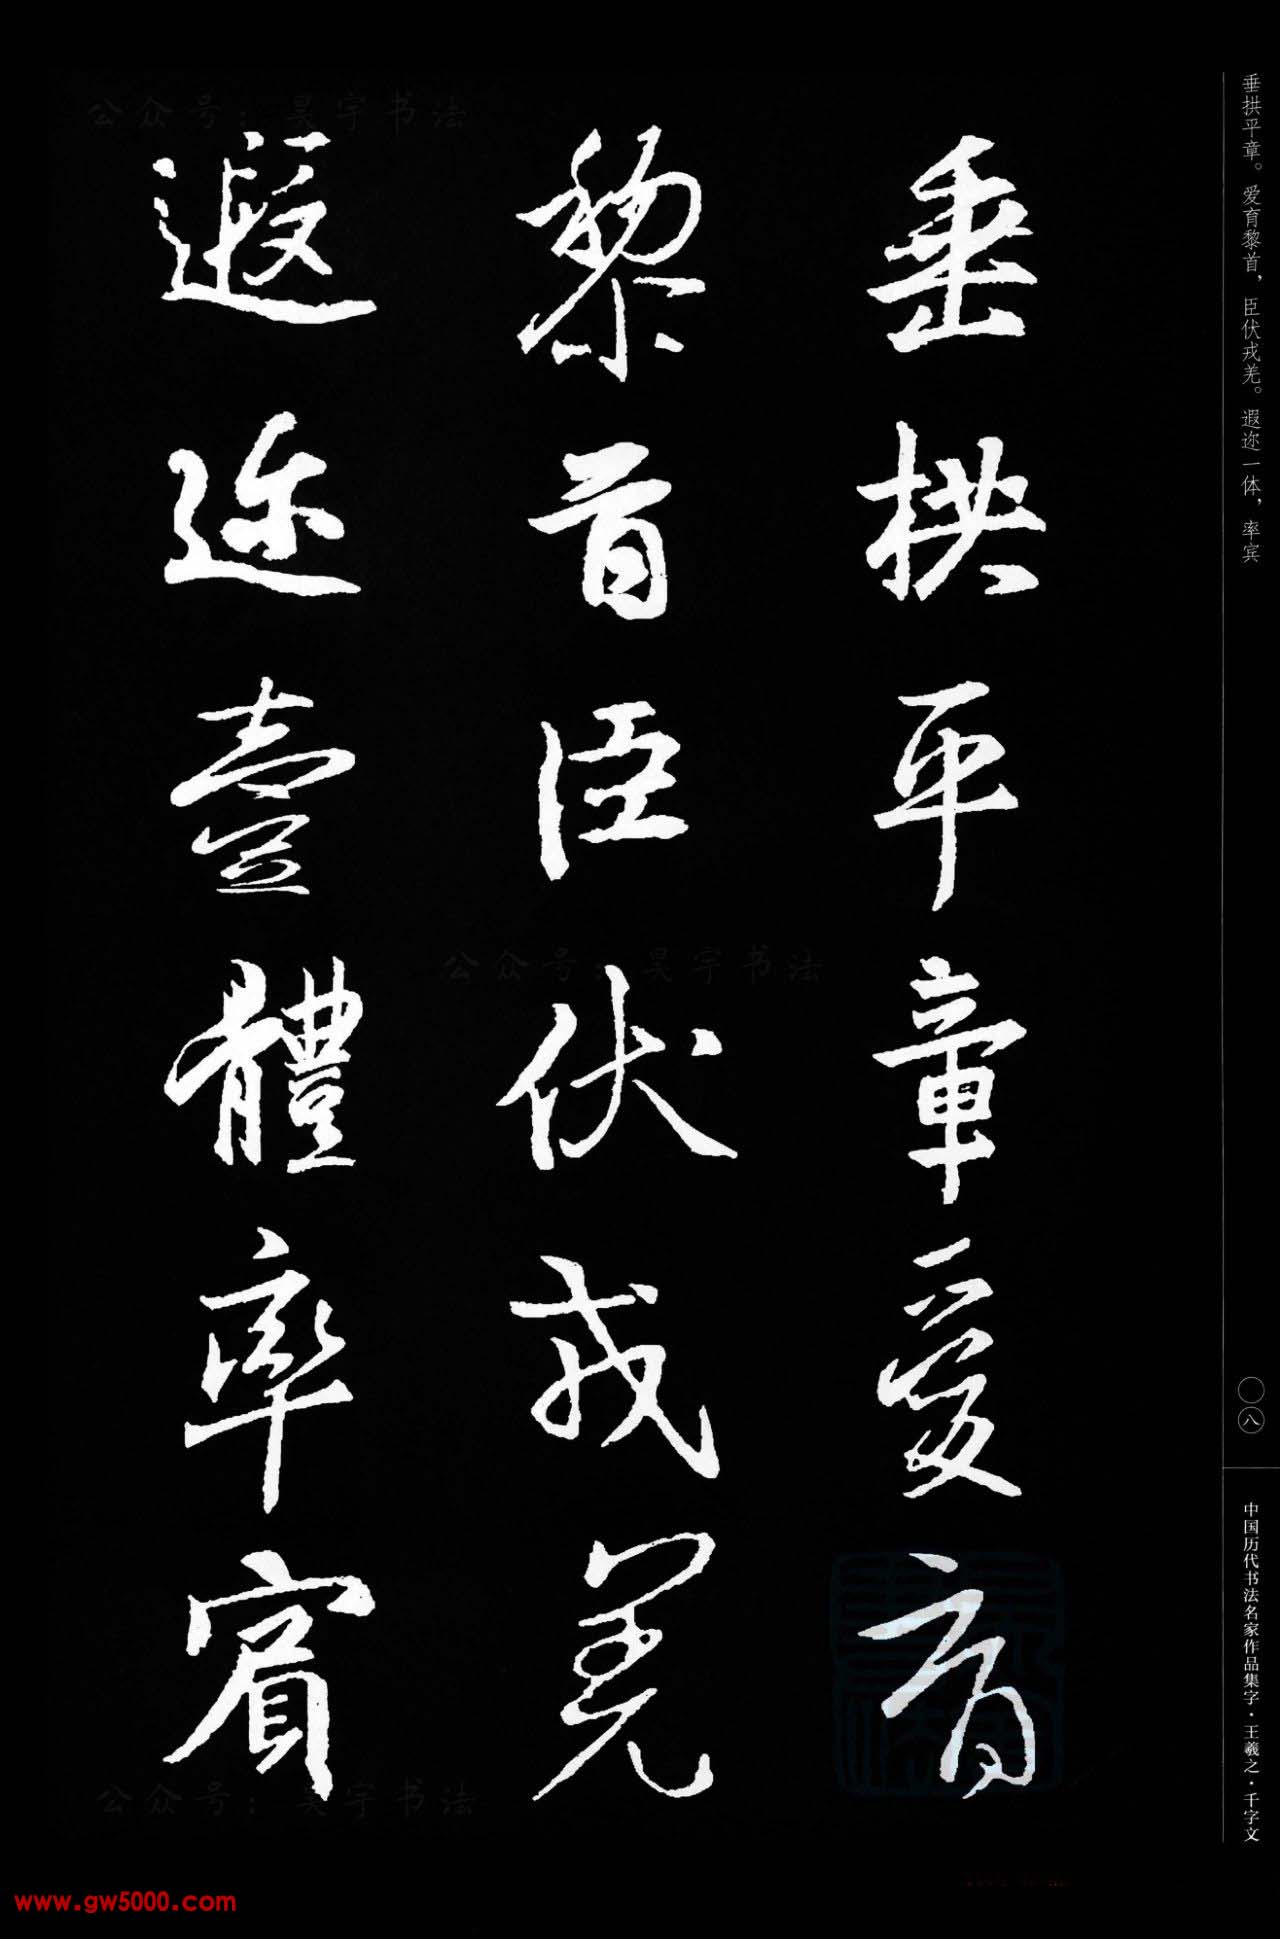 垂拱平章。爱育黎首，臣伏戎羌。遐迩一体，率宾
垂拱平章愛育
黎首臣伏戎羌
遐迩壹體率賓
〇八
中国历代书法名家作品集字·王羲之·千字文
公众号：昊宇书法
公众号：昊宇书法
公众号：昊宇书法
www.gw5000.com